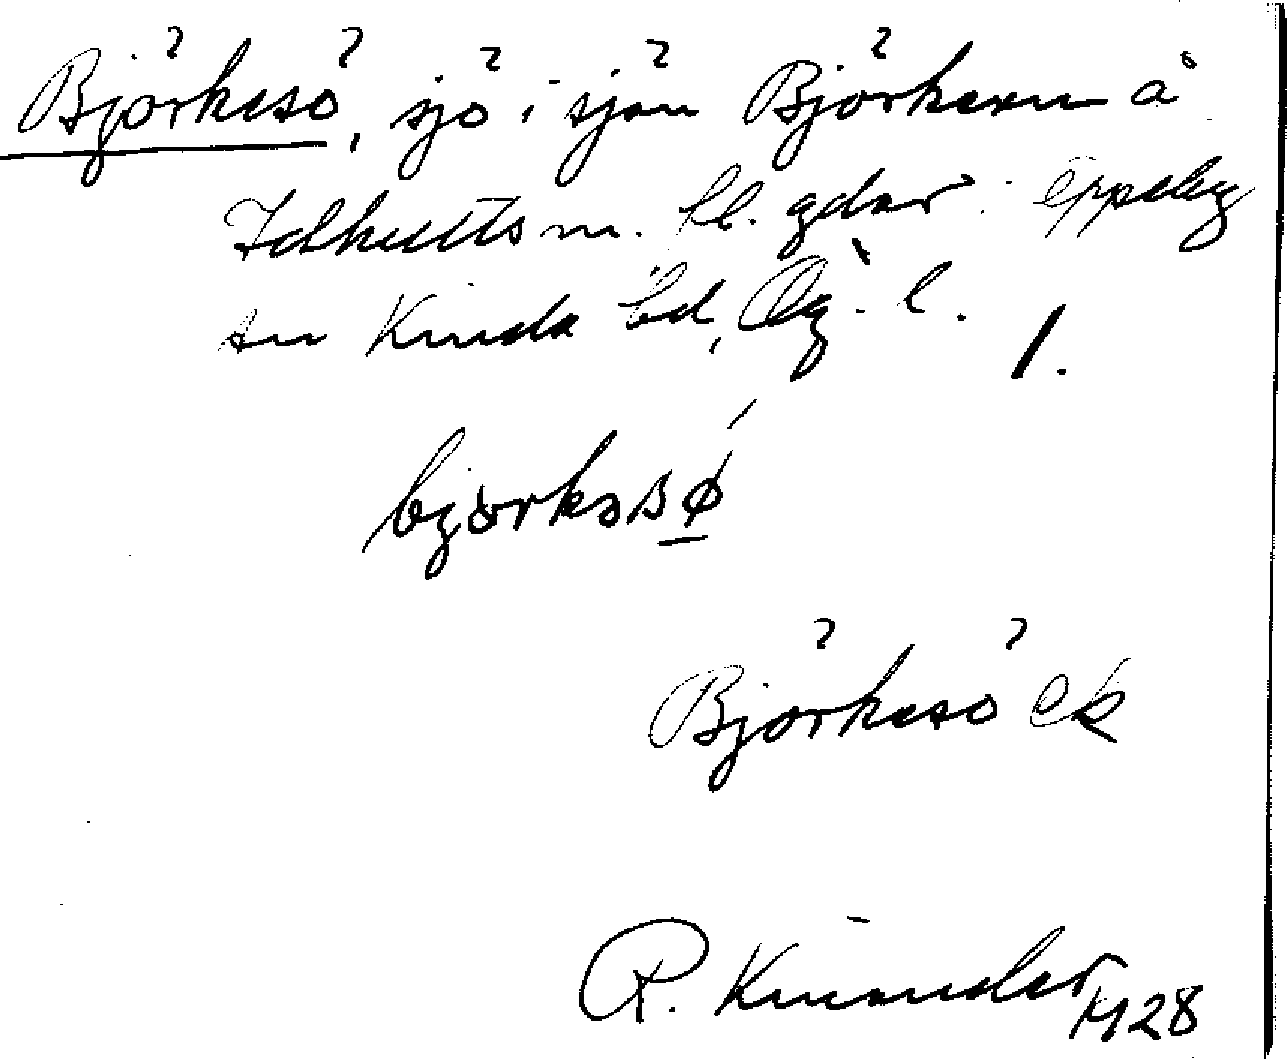 Björkesö, sjö i sjön Björkern å
Idhults m. fl. gdar i Oppeby
sn Kinda hd, Ög. l. 1.
bjørkəsø
Björkesö ek
R. Kinander 1928